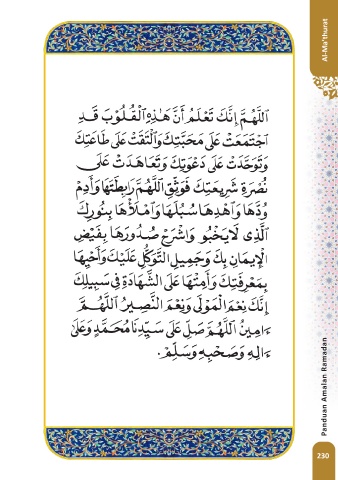 اَللَّهُمَّ إِنَّكَ تَعْلَمُ أَنَّ هَٰذِهِ ٱلْقُلُوْبَ قَدِ
ٱجْتَمَعَتْ عَلَىٰ مَحَبَّتِكَ وَٱلْتَقَتْ عَلَىٰ طَاعَتِكَ
وَتَوَحَّدَتْ عَلَىٰ دَعْوَتِكَ وَتَعَاهَدَتْ عَلَىٰ
نُصْرَةِ شَرِيعَتِكَ فَوَثِّقِ ٱللَّهُمَّ رَابِطَتَهَا وَأَدِمْ
وُدَّهَا وَٱهْدِهَا سُبُلَهَا وَٱمْلَأْهَا بِنُورِكَ
ٱلَّذِى لَا يَخْبُوْ وَٱشْرَحْ صُدُورَهَا بِفَيْضِ
ٱلْإِيمَانِ بِكَ وَجَمِيلِ ٱلتَّوَكُّلِ عَلَيْكَ وَأَحْيِهَا
بِمَعْرِفَتِكَ وَأَمِتْهَا عَلَى ٱلشَّهَادَةِ فِى سَبِيلِكَ
إِنَّكَ نِعْمَ ٱلْمَوْلَىٰ وَنِعْمَ ٱلنَّصِيرُ ٱللَّهُمَّ
ءَامِينَ ٱللَّهُمَّ صَلِّ عَلَىٰ سَيِّدِنَا مُحَمَّدٍ وَعَلَىٰ
ءَالِهِ وَصَحْبِهِ وَسَلِّمْ.
Al-Ma'thurat
Panduan Amalan Ramadan
230